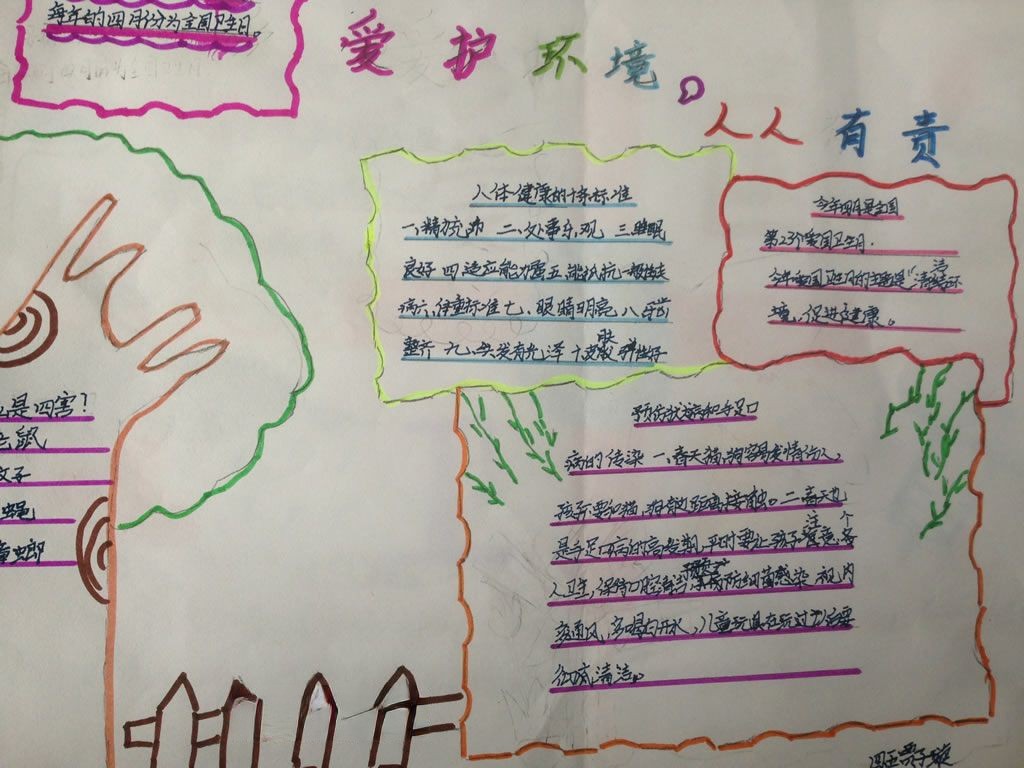 每年的四月份为全国卫生日。
爱护环境。
人人有责
人体健康的十条标准
一、精力充沛 二、处事乐观 三睡眠
良好 四 适应能力
病六、体重标准 七、眼睛明亮 八 牙齿
整齐 九、头发有光泽 十皮肤
今年四月是全国
第23个爱国卫生月.
今年爱国卫生月的主题是“清洁环
境,促进健康。
是四害?
老鼠
蚊子
蝇
蟑螂
预防狂犬病和手足口
病的传染 一、春天猫、狗容易发情伤人,
孩子要和猫、狗 距离接触。二 春天也
是手足口病的高发期,平时要让孩子注意个
人卫生,保持口腔清洁 预防细菌感染 视内
多通风,多喝白开水,儿童玩具在玩过 后要
彻底清洁。